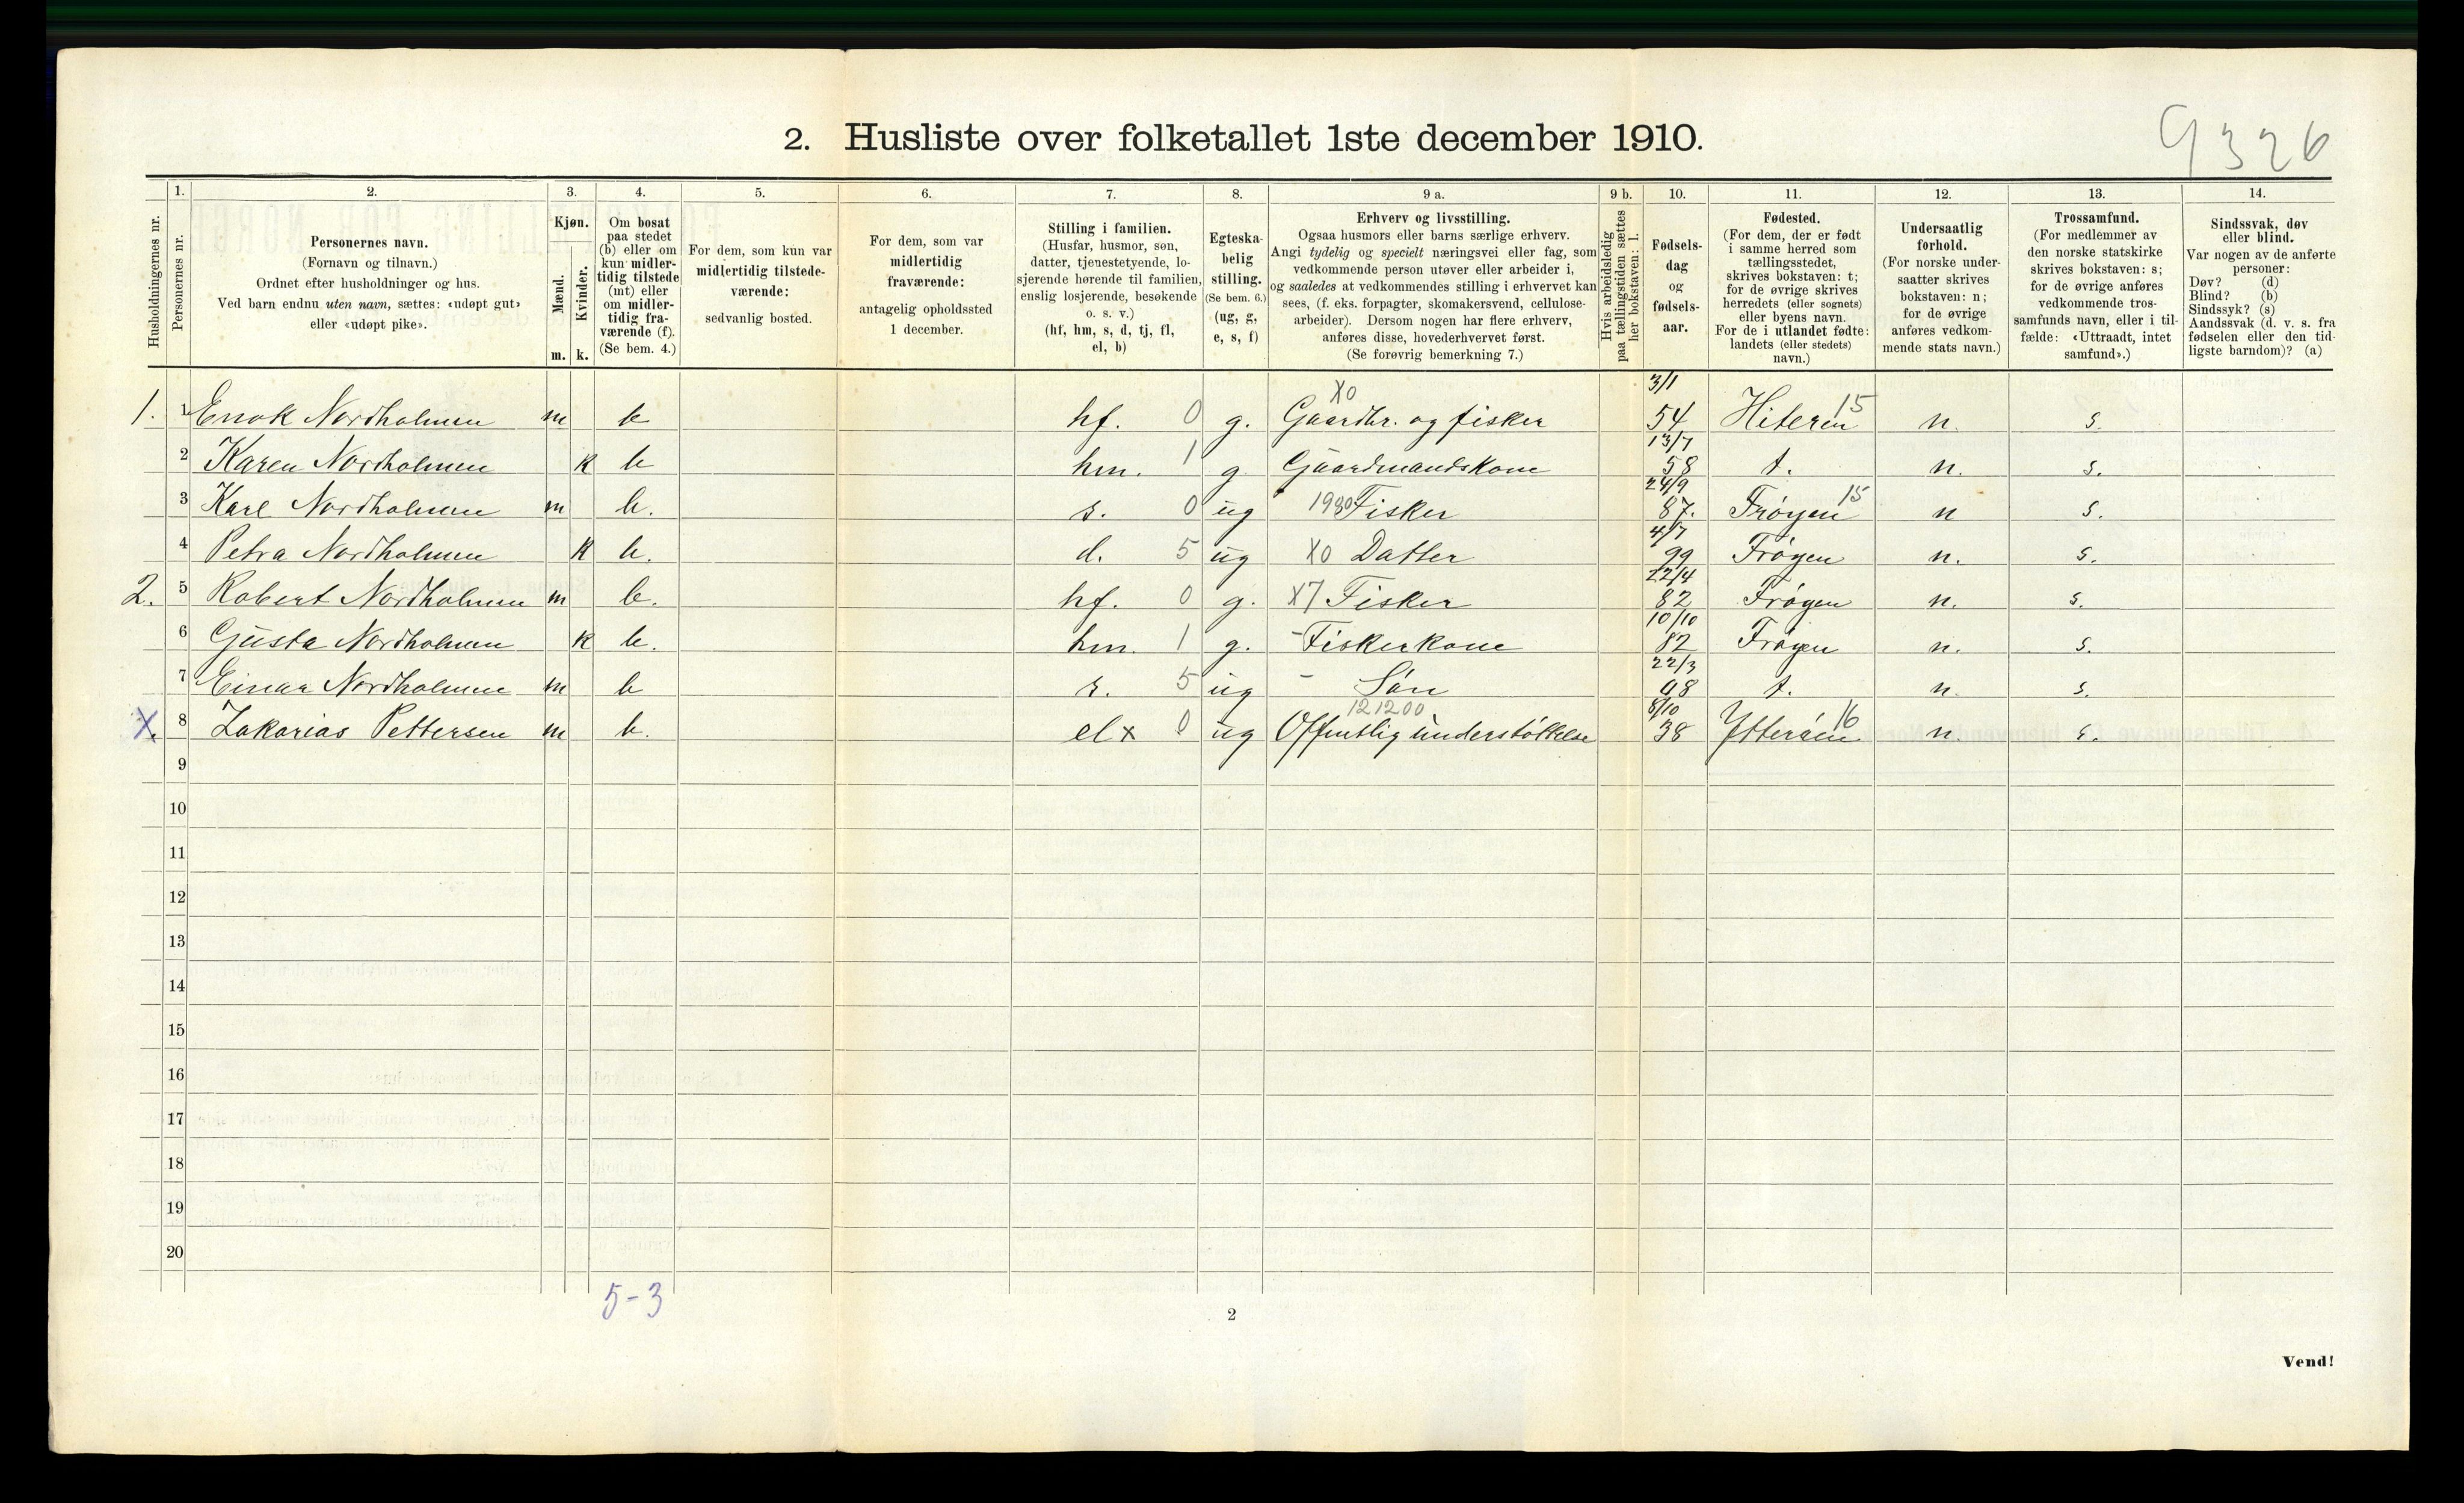 9326
2. Husliste over folketallet 1ste december 1910.
Husholdningernes nr.
1.
Personernes nr.
2.
Personernes navn.
(Fornavn og tilnavn.)
Ordnet efter husholdninger og hus.
Ved barn endnu uten navn, sættes: «udøpt gut»
eller «udøpt pike».
3.
Kjøn.
Mænd.
Kvinder.
m. k.
4.
Om bosat
paa stedet
(b) eller om
kun midler-
tidig tilstede
(mt) eller
om midler-
tidig fra-
værende (f).
(Se bem. 4.)
5.
For dem, som kun var
midlertidig tilstede-
værende:
sedvanlig bosted.
6.
For dem, som var
midlertidig
fraværende:
antagelig opholdssted
1 december.
7.
Stilling i familien.
(Husfar, husmor, søn,
datter, tjenestetyende, lo-
sjerende hørende til familien,
enslig losjerende, besøkende
o. s. v.)
(hf, hm, s, d, tj, fl,
el, b)
8.
Egteska-
belig
stilling.
(Se bem. 6.)
(ug, g,
e, s, f)
9 a.
Erhverv og livsstilling.
Ogsaa husmors eller barns særlige erhverv.
Angi tydelig og specielt næringsvei eller fag, som
vedkommende person utøver eller arbeider i,
og saaledes at vedkommendes stilling i erhvervet kan
sees, (f. eks. forpagter, skomakersvend, cellulose-
arbeider). Dersom nogen har flere erhverv,
anføres disse, hovederhvervet først.
(Se forøvrig bemerkning 7.)
9 b.
Hvis arbeidsledig
paa tællingstiden sættes
her bokstaven: l.
10.
Fødsels-
dag
og
fødsels-
aar.
11.
Fødested.
(For dem, der er født
i samme herred som
tællingsstedet,
skrives bokstaven: t;
for de øvrige skrives
herredets (eller sognets)
eller byens navn.
For de i utlandet fødte:
landets (eller stedets)
navn.)
12.
Undersaatlig
forhold.
(For norske under-
saatter skrives
bokstaven: n;
for de øvrige
anføres vedkom-
mende stats navn.)
13.
Trossamfund.
(For medlemmer av
den norske statskirke
skrives bokstaven: s;
for de øvrige anføres
vedkommende tros-
samfunds navn, eller i til-
fælde: «Uttraadt, intet
samfund».)
14.
Sindssvak, døv
eller blind.
Var nogen av de anførte
personer:
Døv? (d)
Blind? (b)
Sindssyk? (s)
Aandssvak (d. v. s. fra
fødselen eller den tid-
ligste barndom)? (a)
X0 3/1
1. 1 Enok Nordholmen m b hf. 0 g. Gaardbr. og fisker 54 Hiteren 15 n. s.
13/7
2 Karen Nordholmen k b hm. 1 g. Gaardmandskone 58 t. n. s.
24/9
3 Karl Nordholmen m b. s. 0 ug 1930 Fisker 87. Frøyen 15 n s.
4/7
4 Petra Nordholmen k b. d. 5 ug X0 Datter 99 Frøyen n. s.
22/4
2. 5 Robert Nordholmen m b. hf. 0 g. X7 Fisker 82 Frøyen n. s.
10/10
6 Gusta Nordholmen k b. hm. 1 g. - Fiskerkone 82 Frøyen n. s.
22/3
7 Einar Nordholmen m b s. 5 ug - Søn 08 t. n. s.
121200 8/10
X. 8 Zakarias Pettersen m b. el x 0 ug Offentlig understøttelse 38 Ytterøen 16 n. s.
9
10
11
12
13
14
15
16
17
18
19
20
5-3
2
Vend!